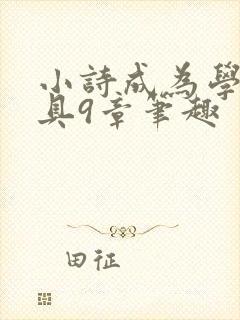 小詩成為學
具9章筆趣
田征